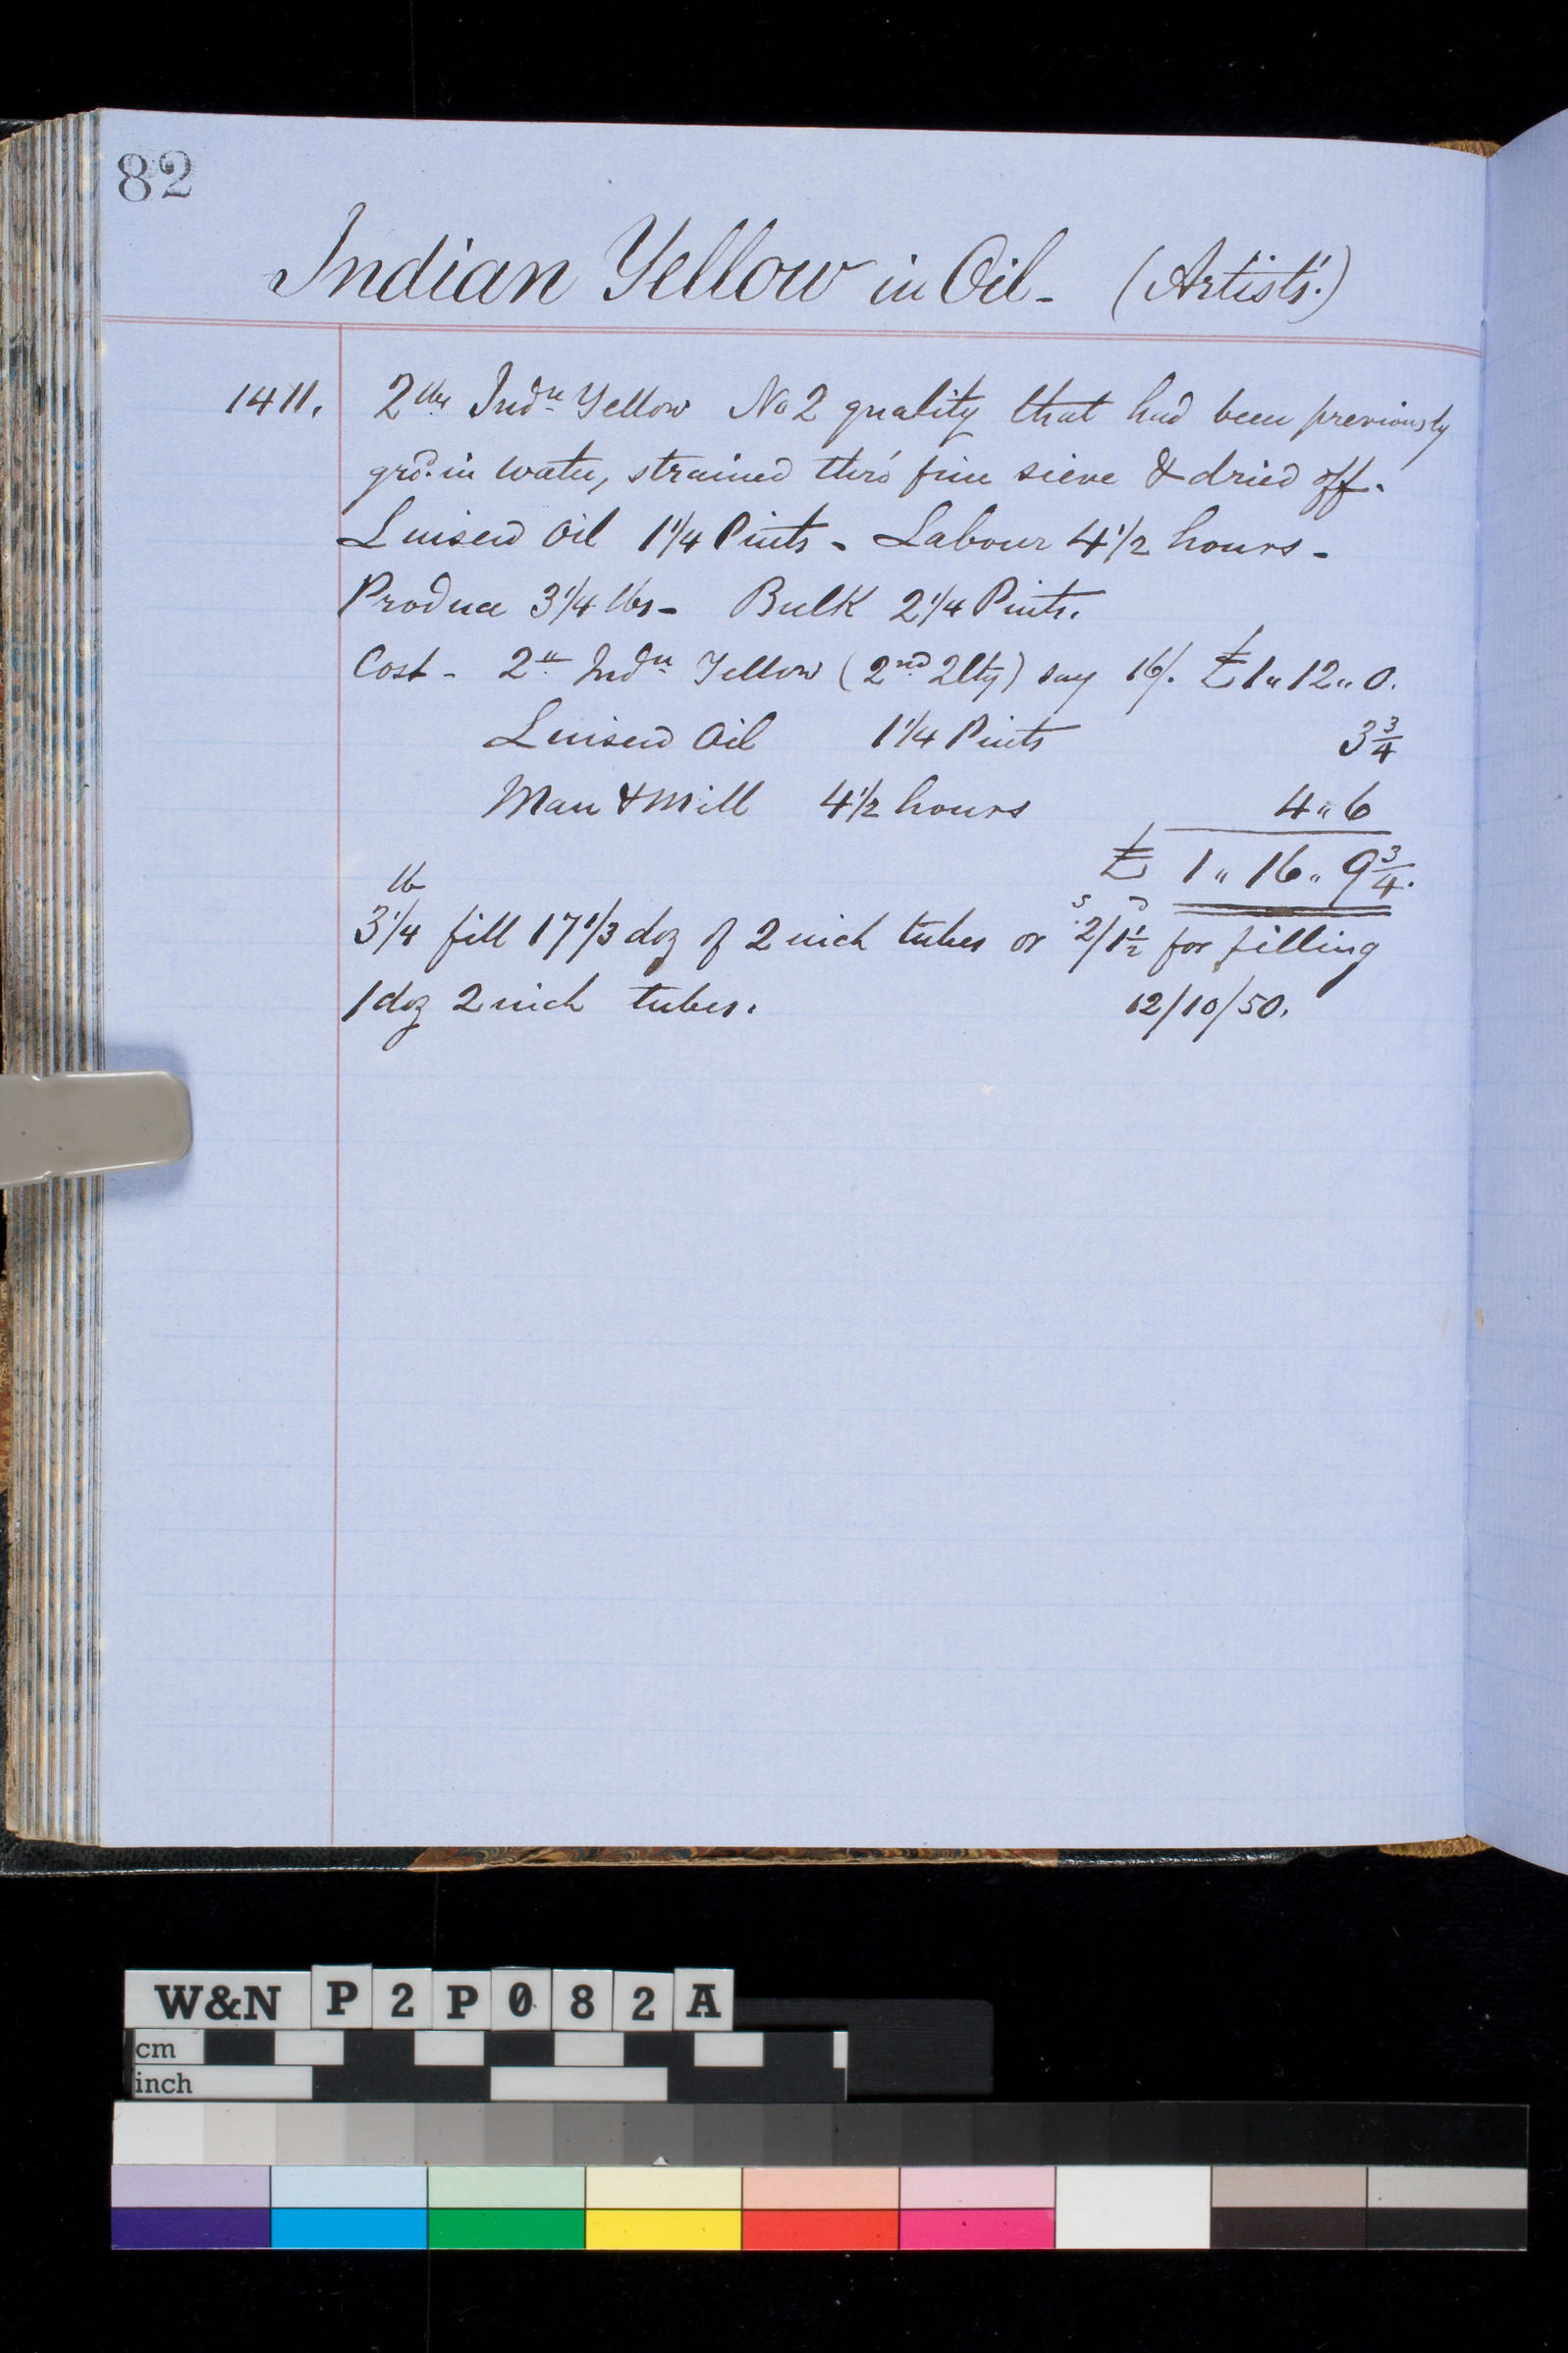 82
Indian Yellow in Oil - (Artists'.)
1411. 2 lbs Indn Yellow No 2 quality that had been previously
grd. in water, strained thro' fine sieve & dried off.
Linseed Oil 1 1/4 Pints - Labour 4 1/2 hours -
Produce 3 1/4 lbs - Bulk 2 1/4 Pints.
Cost - 2 lb Indn Yellow (2nd 2lty) say 16/. £1 " 12 " 0.
Linseed Oil 1 1/4 Pints 3 3/4
Man & Mill 4 1/2 hours 4 " 6
£ 1 " 16 " 9 3/4.
lb S D
3 1/4 fill 17 1/3 doz of 2 inch tubes or 2/1 1/2 for filling
1 doz 2 inch tubes. 12/10/50.
W&N P2P082A
cm
inch